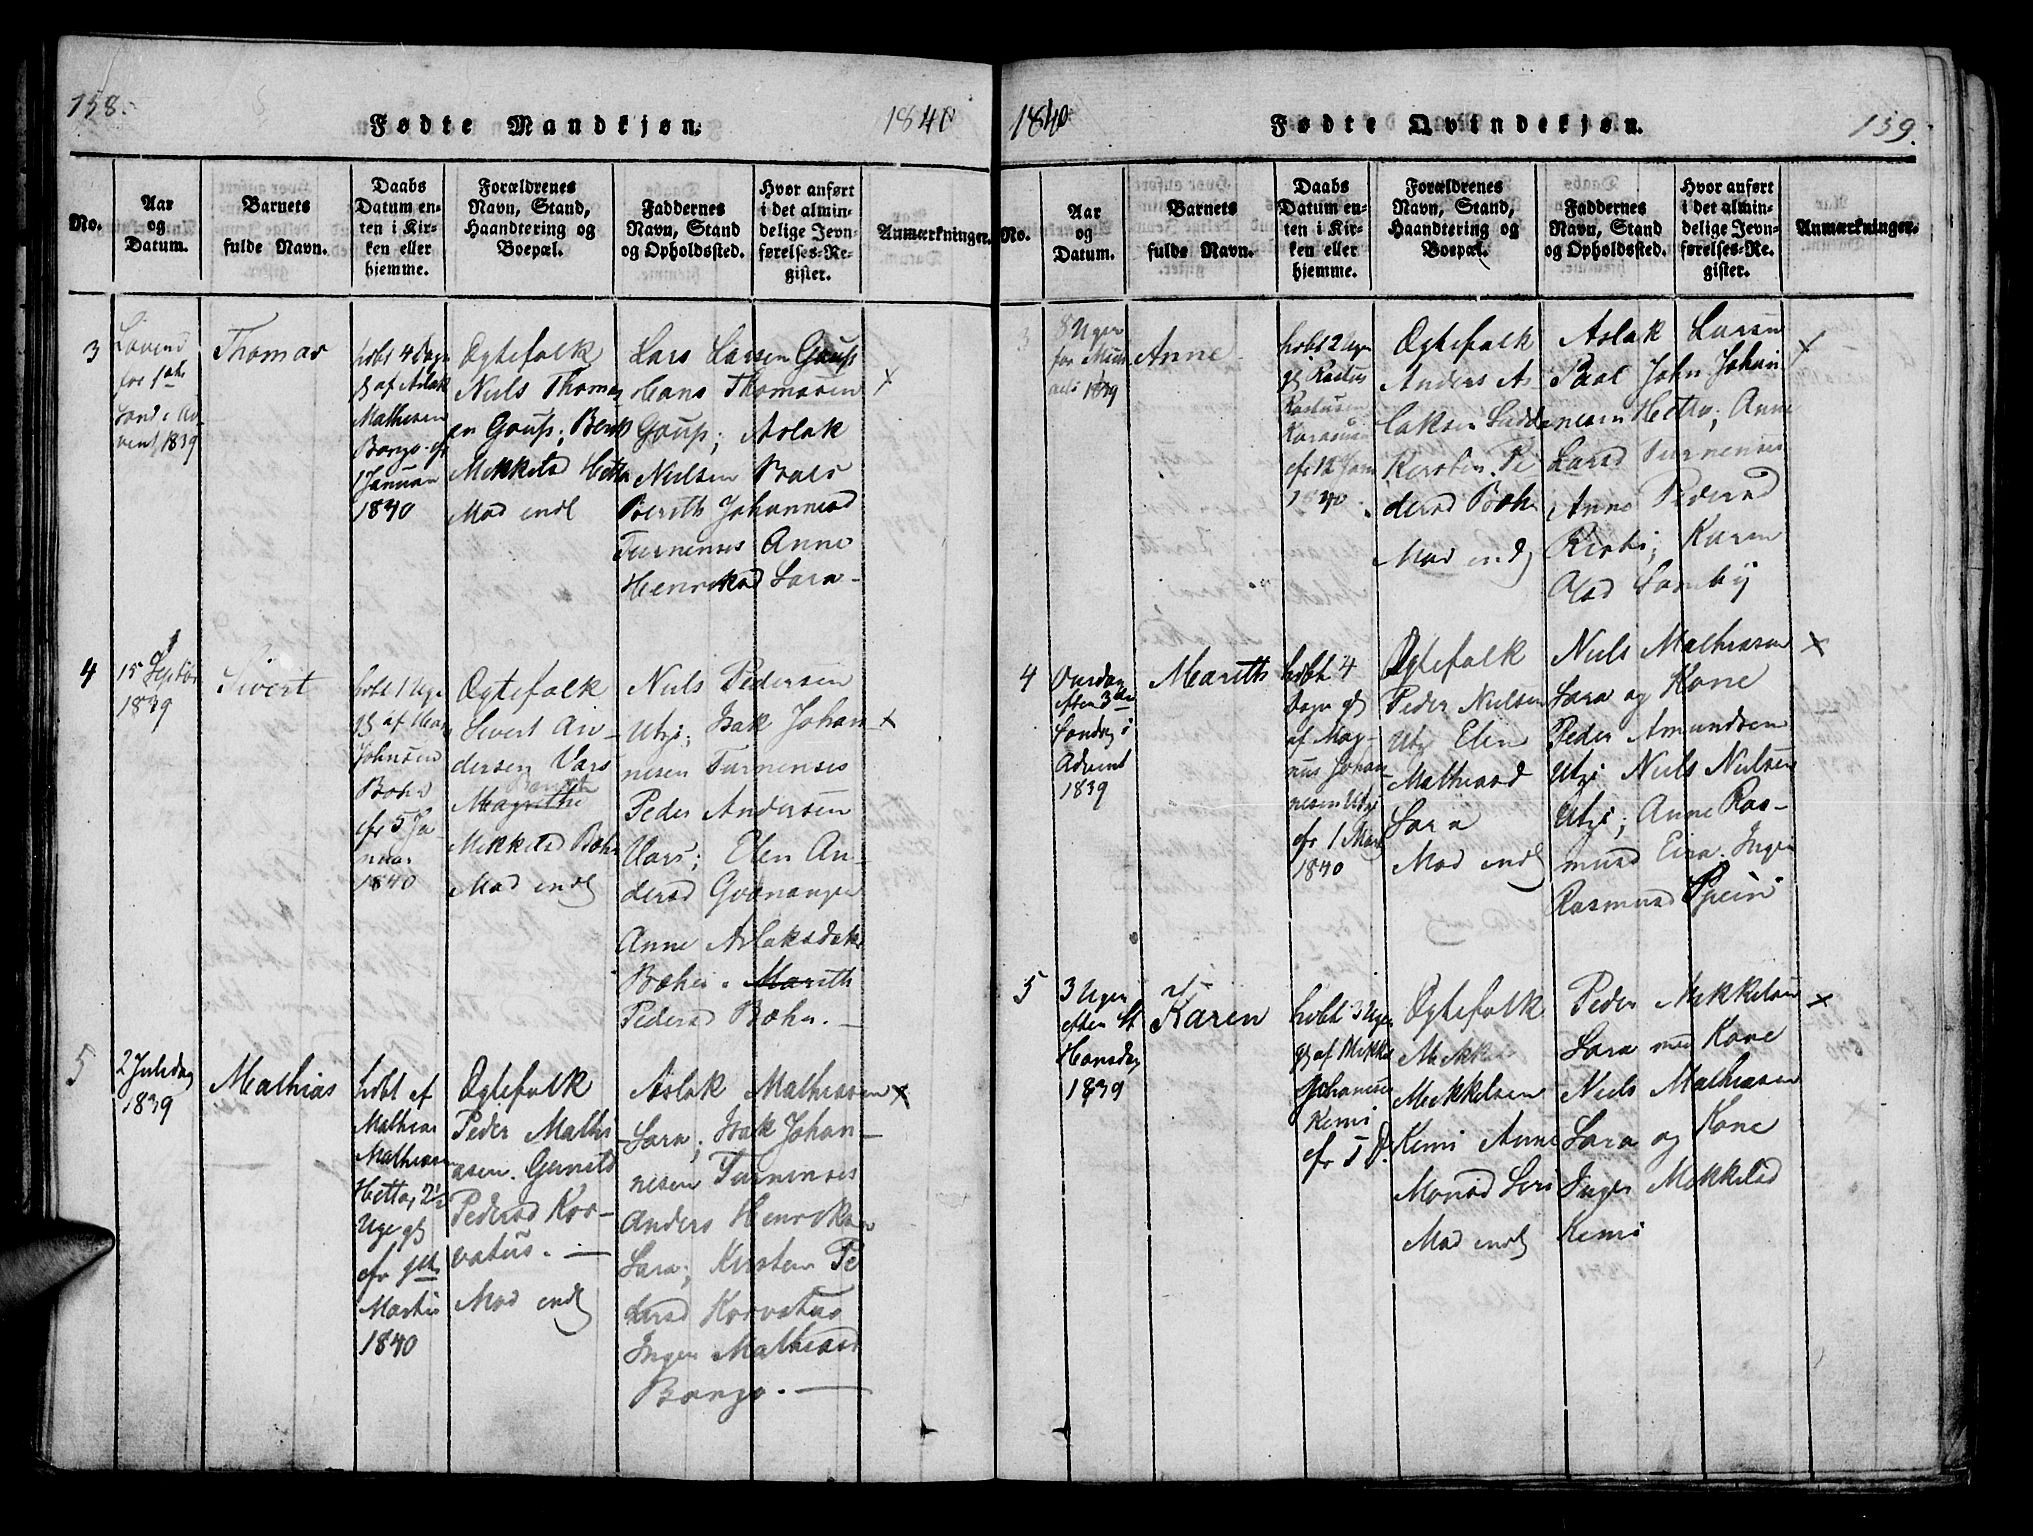 158.
Fødte Mandkjøn.
1840
No.
Aar
og
Datum.
Barnets
fulde Navn.
Daabs
Datum en-
ten i Kir-
ken eller
hjemme.
Forældrenes
Navn, Stand,
Haandtering og
Boepæl.
Faddernes
Navn, Stand
og Opholdssted.
Hvor anført
i det almin-
delige Jevn-
førelses-Re-
gister.
Anmærkninger.
3
Løverd
for 1ste
Sønd i Ad-
vent 1839
Thomas
hobt 4 Dage
gl af Aslak
Mathisen
Bongo efr
1 Januar
1840
Ogtefolk
Niels Thomas
en Goup; Berit
Mikkelsd Hetta
Mod endl
Lars Larsen Goup
Hans Thomasen
Goup; Aslak
Nielsen Bals
Berith Johannesd
Turnenses Anne
Henriksd Sara -
x
4
15 Septbr
1839
Sivert
hobt 1 Uge
gl af Han
Johnsen
Bæhr
efr 5 Ja
nuar
1840
Ogtefolk
Sivert An-
dersen Vars
Berith
Magrethe
Mikkelsd Bæhr
Mod endl
Niels Pedersen
Utzi; Isak Johan
nesen Turnenses
Peder Andersen
Vars; Elen An-
dersd Qvænanger
Anne Aslaksdatr
Bæhr. Marith
Pedersd Bæhr. -
x
5
2 Juledag
1839
Mathias
hobt af
Mathias
Mathisen
Hetta, 2½
Uge gl
efr 1ste
Martii
1840
Ogtefolk
Peder Mathi
asen. Gunild
Pedersd Kor-
vatus. -
Mod endl
Aslak Mathiasen
Sara; Isak Johan-
nesen Turnenses
Anders Henriksen
Sara; Kirsten Pe
dersd Korvatus
Inger Mathiasd
Bongo. -
x
1840
Fødte Qvindekjøn.
159.
No.
Aar
og
Datum.
Barnets
fulde Navn.
Daabs
Datum en-
ten i Kir-
ken eller
hjemme.
Forældrenes
Navn, Stand,
Haandtering og
Boepæl.
Faddernes
Navn, Stand
og Opholdssted.
Hvor anført
i det almin-
delige Jevn-
førelses-Re-
gister.
Anmærkninger.
3
8 Uger
for Mich
aeli 1839
Anne
hobt 2 Uger
gl Rastus
Rastusen
efr 12 Jan
1840
Ogtefolk
Anders As
laksen Sadde
Kirsten Pe
dersd Bæhr
Mod endl
Aslak Larsen
Paal John Johan
nesen Hetta; Anne
Larsd Turnenses
Anne Pedersd
Kirsti; Karen
Olsd Somby
x
4
Onsdag
efter 3die
Søndag i
Advent
1839
Marith
hobt 4
Dage gl
af Mag-
nus Johan
nesen Utzi
efr 1 Mart
1840
Ogtefolk
Peder Nielsen
Utzi Elen
Mathiasd
Sara
Mod endl
Niels Mathiasen
Sara og Kone
Peder Amundsen
Utzi Niels Nielsen
Utzi; Anne Ras-
musd Eira. Inger
Rasmusd
x
5
3 Uger
efter St
Hansdag
1839
Karen
hobt 3 Uger
gl af Mikkel
Johannes
Kemi
efr 5 D.
Ogtefolk
Mikkel
Mikkelsen
Kemi Anne
Monsd Siri
Mod endl
Peder Mikkelsen
Sara med Kone
Niels Mathiasen
Sara og Kone
Inger Mikkelsd
Kemi
x